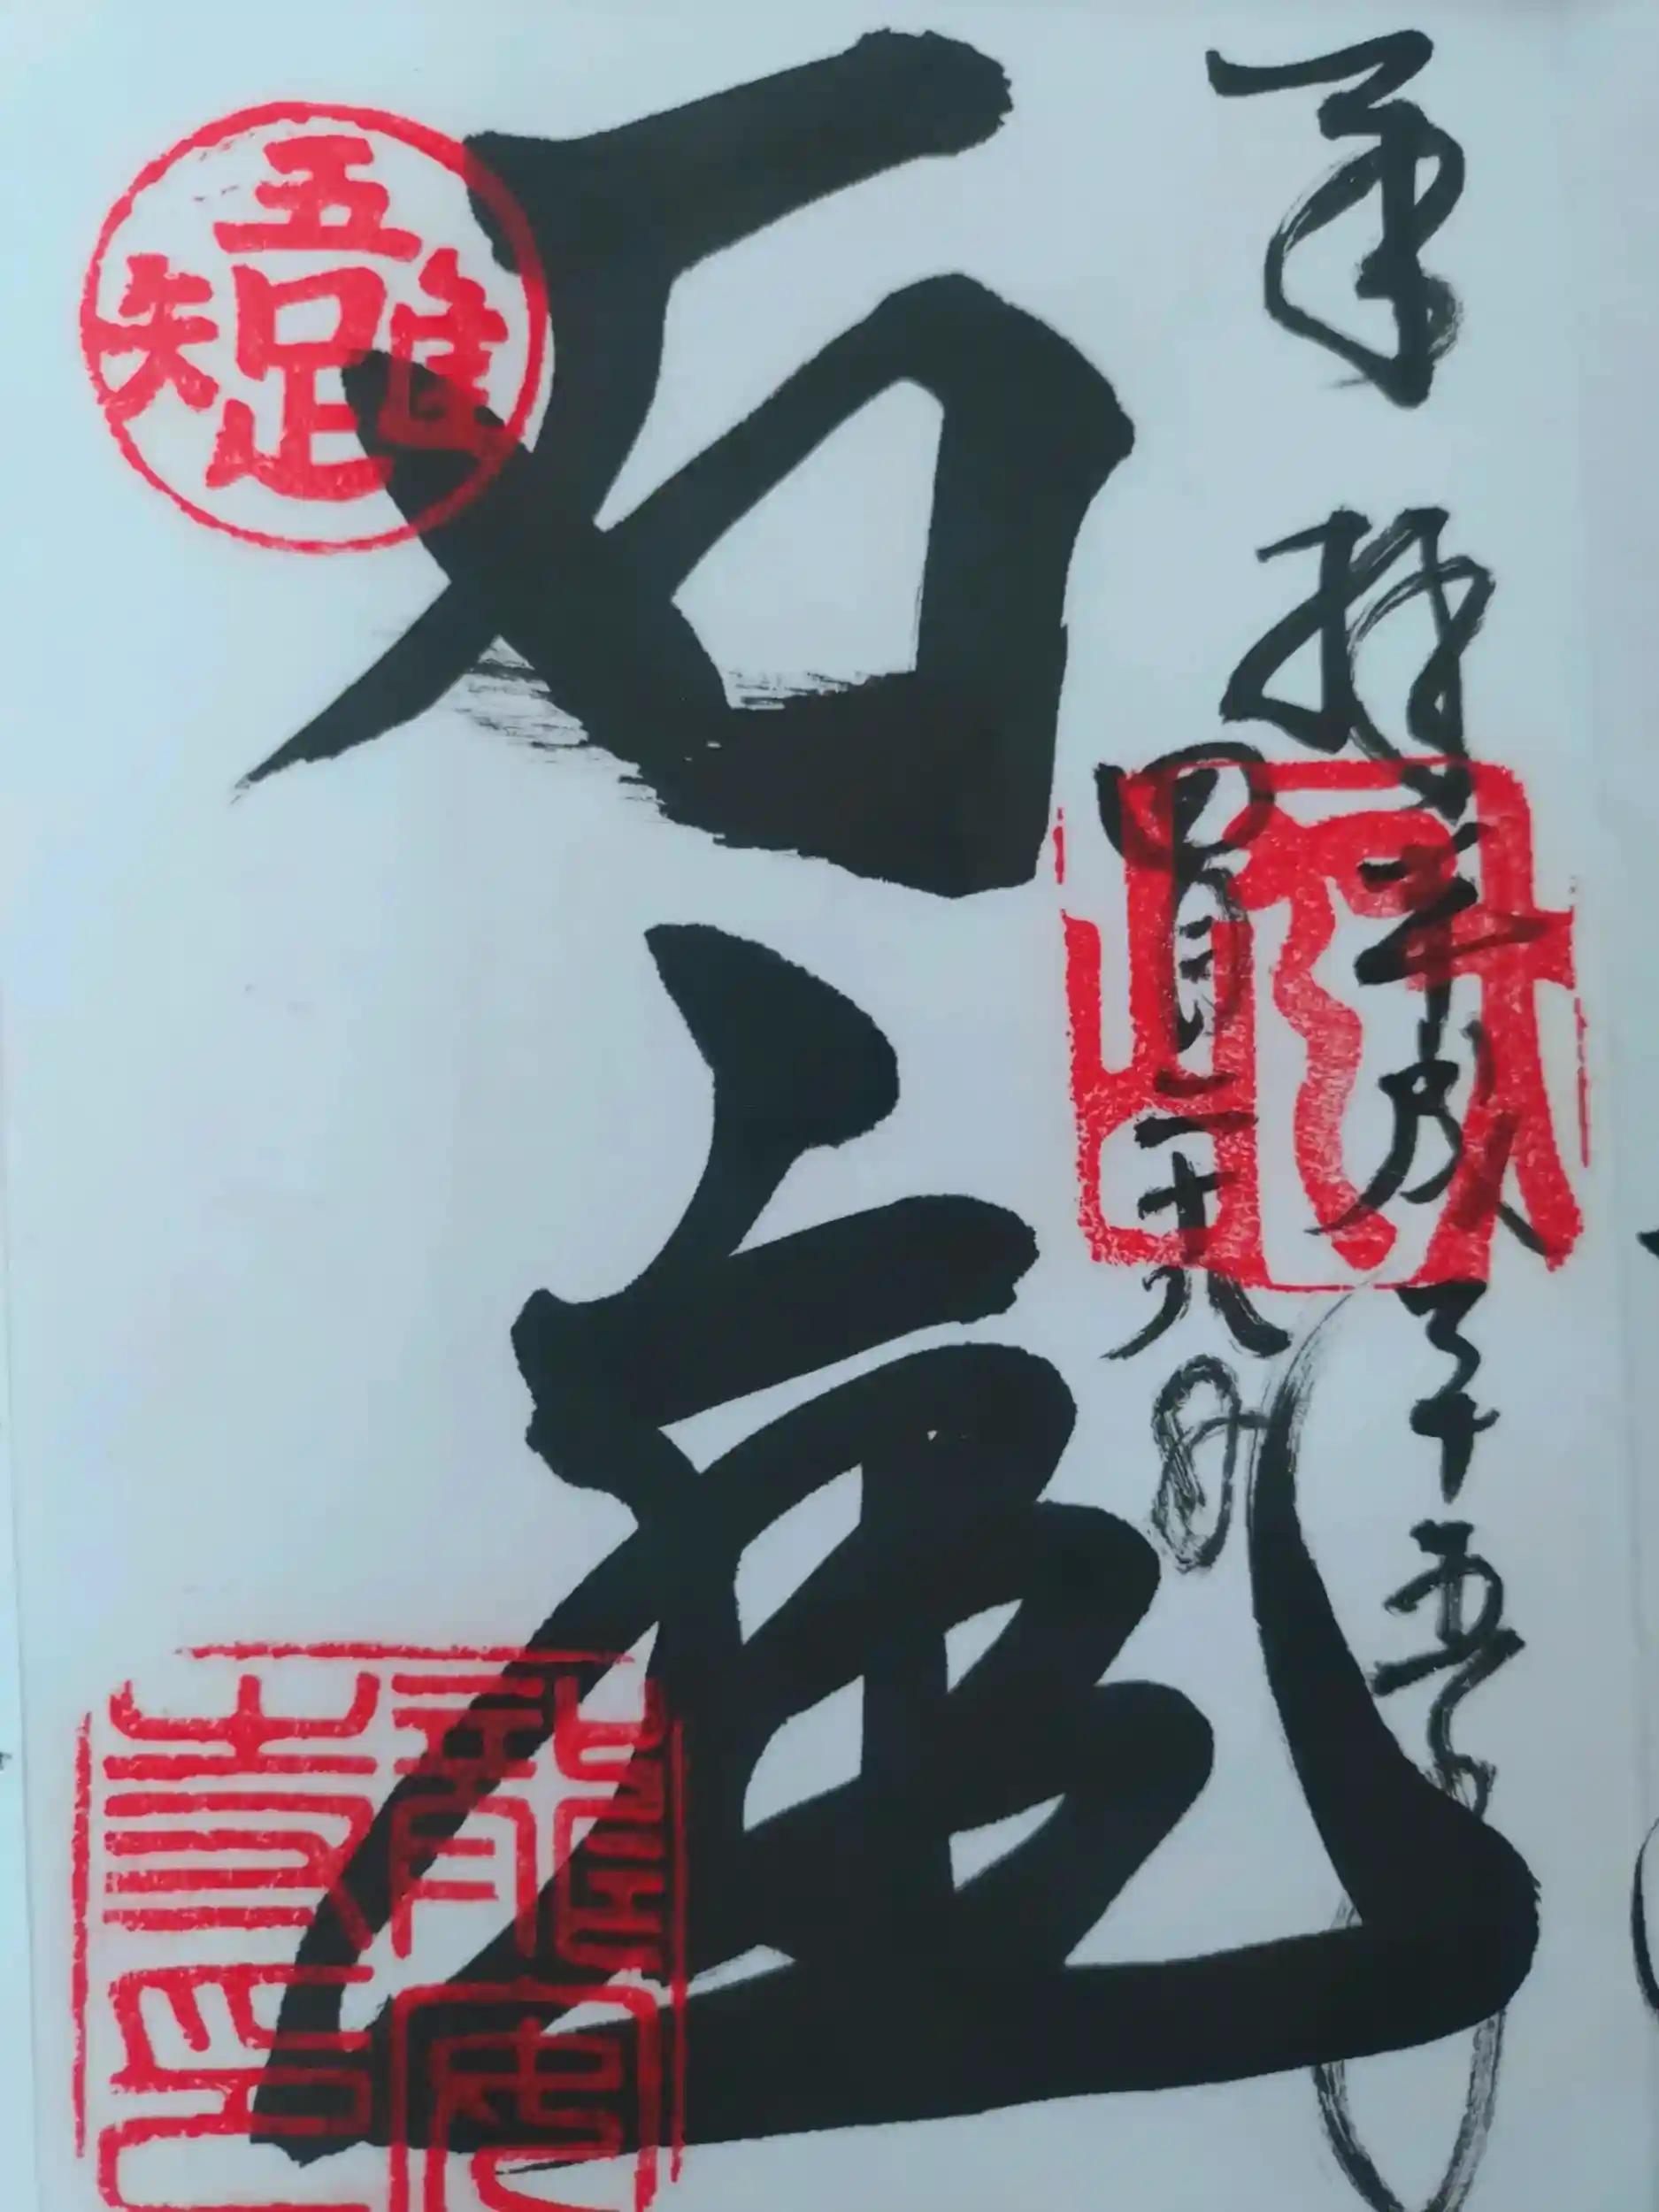 奉拝
平成二十五年
四月二十八日
石庭
吾唯足知
龍安寺印